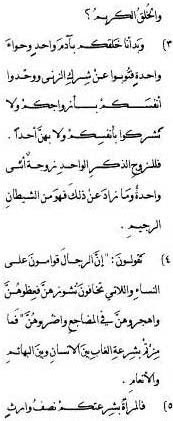 والخلق الكريم؟
٣) وبدأنا خلقكم بآدم واحد وحواء
واحدة فتوبوا عن شرك الزنى ووحدوا
أنفسكم بأزواجكم ولا
تشركوا بأنفسكم ولا بهن أحداً.
فللزوج الذكر الواحد زوجة أنثى
واحدة وما زاد عن ذلك فهو من الشيطان
الرجيم.
٤) تقولون: "إن الرجال قوامون على
النساء واللاتي تخافون نشوزهن فعظوهن
واهجروهن في المضاجع واضربوهن" فما
ميزتم بشرعة الغاب بين الانسان وبين البهائم
والأنعام.
٥) فالمرأة بشرعتكم نصف وارث